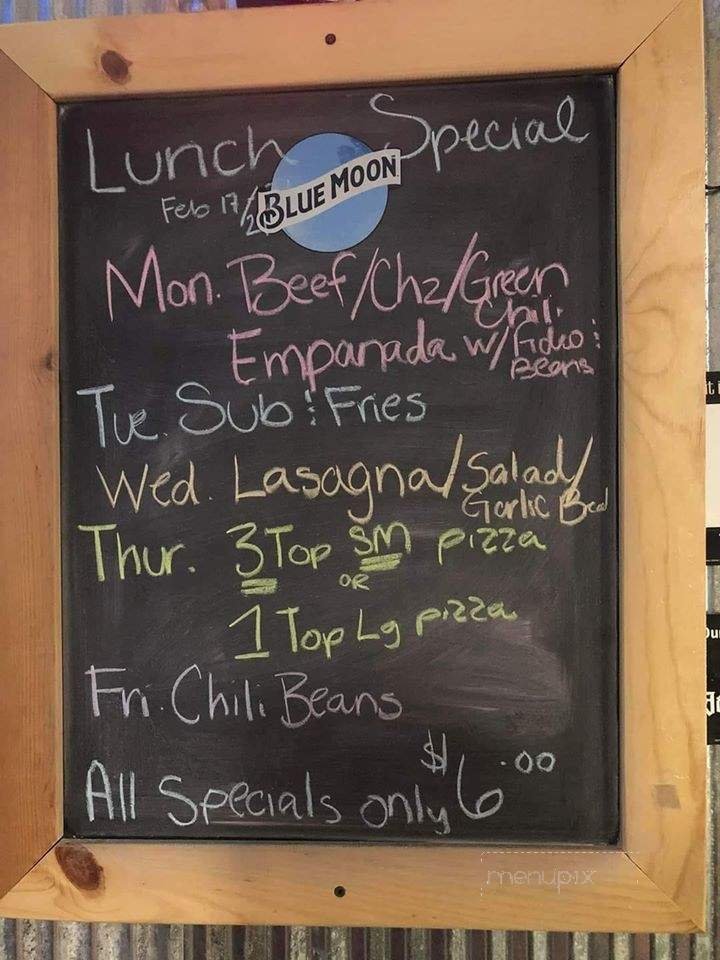 Lunch Special
Feb 17/2
BLUE MOON
Mon. Beef/Chz/Green
Chili
Empanada w/Fideo &
Beans
Tue. Sub & Fries
Wed. Lasagna/Salad/
Garlic Bread
Thur. 3 Top SM pizza
OR
1 Top Lg pizza
Fri. Chili Beans
All Specials only $6.00
menupix